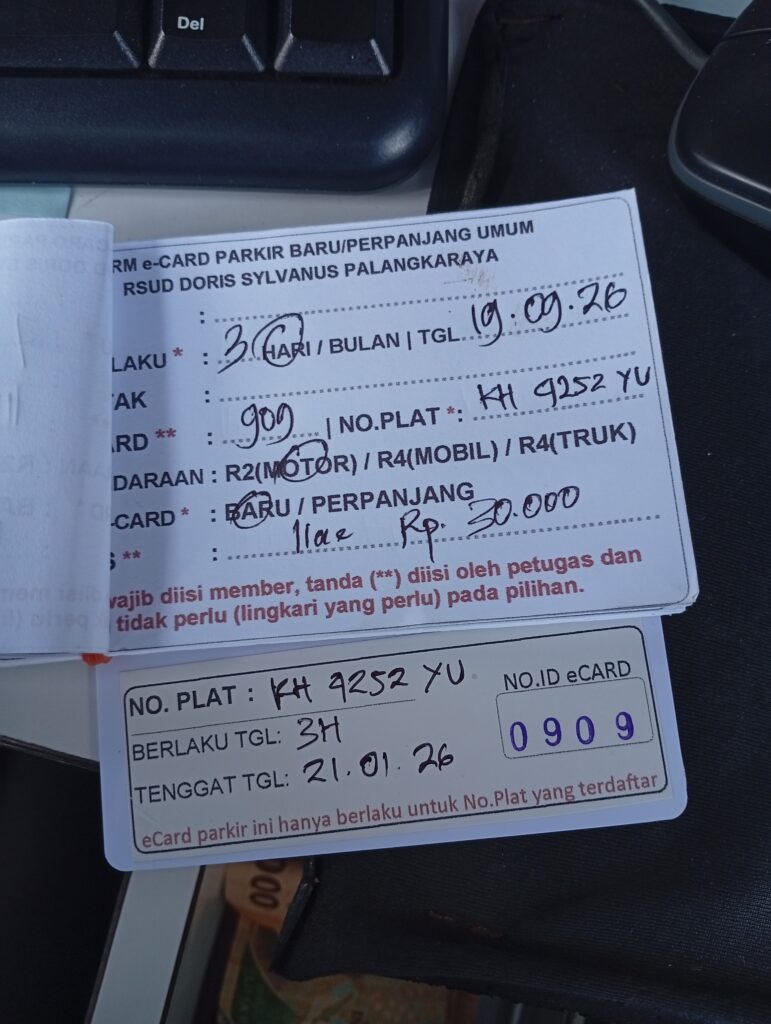 Del
RM e-CARD PARKIR BARU/PERPANJANG UMUM
RSUD DORIS SYLVANUS PALANGKARAYA
:
LAKU * : 3 HARI / BULAN | TGL 19.09.26
AK :
RD ** : 909 | NO.PLAT *: KH 9252 YU
DARAAN : R2(MOTOR) / R4(MOBIL) / R4(TRUK)
-CARD * : BARU / PERPANJANG
S ** : Rp. 30.000
wajib diisi member, tanda (**) diisi oleh petugas dan
tidak perlu (lingkari yang perlu) pada pilihan.
NO. PLAT : KH 9252 YU
NO.ID eCARD
0909
BERLAKU TGL: 3H
TENGGAT TGL: 21.01.26
eCard parkir ini hanya berlaku untuk No.Plat yang terdaftar
000